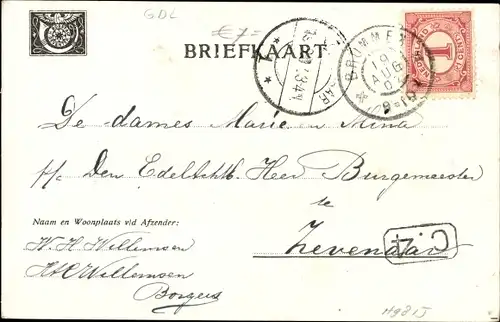 GDL
€7=
BRIEFKAART
BRUMMEN
19
AUG
NEDERLAND
1
CENT
3-4
De dames Marie en Mina
p/a Den Edelachtb. Heer Burgemeester
te
Zevenaar
Naam en Woonplaats v/d Afzender:
W. H. Willemsen
Willemsen
Borgers